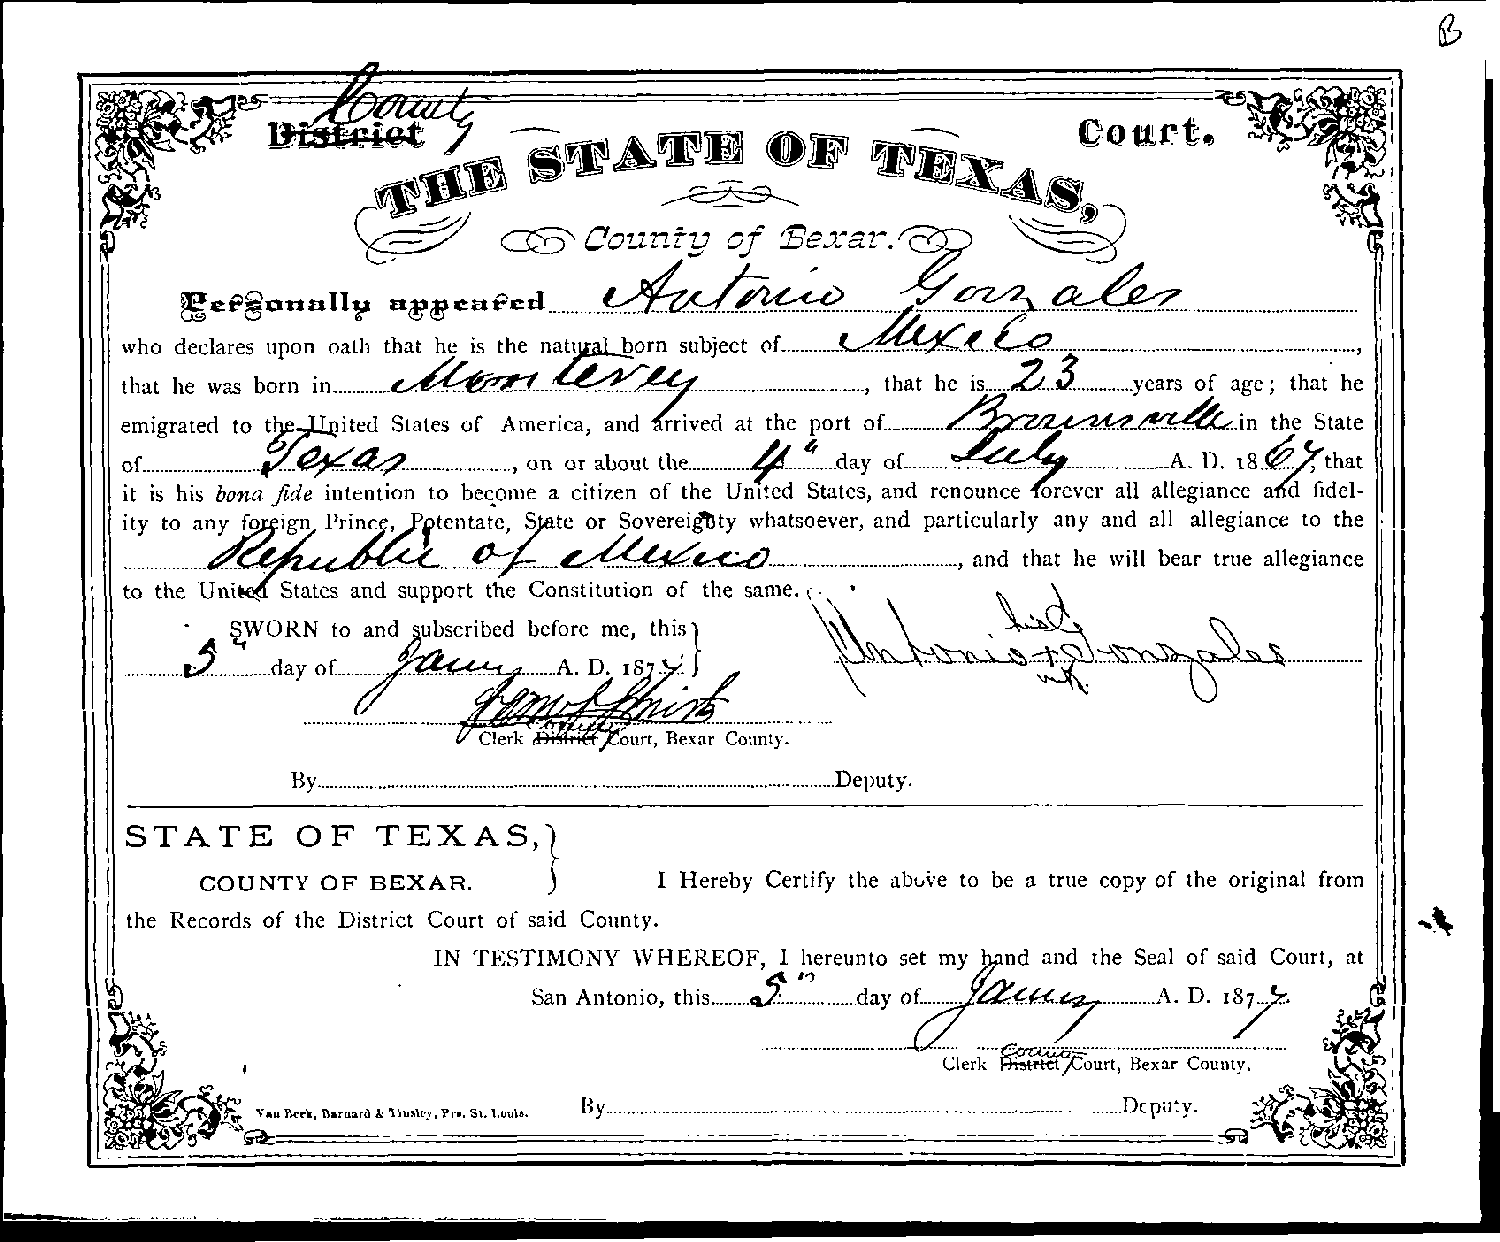 B
County
District Court.
THE STATE OF TEXAS,
County of Bexar.
Personally appeared Antonio Gonzales
who declares upon oath that he is the natural born subject of Mexico,
that he was born in Monterey, that he is 23 years of age; that he
emigrated to the United States of America, and arrived at the port of Brownsville in the State
of Texas, on or about the 4" day of July A. D. 1867, that
it is his bona fide intention to become a citizen of the United States, and renounce forever all allegiance and fidel-
ity to any foreign Prince, Potentate, State or Sovereignty whatsoever, and particularly any and all allegiance to the
Republic of Mexico, and that he will bear true allegiance
to the United States and support the Constitution of the same.
SWORN to and subscribed before me, this
5" day of Jany A. D. 1877.
his
Antonio x Gonzales
mk.
County
Clerk District Court, Bexar County.
By Deputy.
STATE OF TEXAS,
COUNTY OF BEXAR.
I Hereby Certify the above to be a true copy of the original from
the Records of the District Court of said County.
IN TESTIMONY WHEREOF, I hereunto set my hand and the Seal of said Court, at
San Antonio, this 5" day of Jany A. D. 1877.
County
Clerk District Court, Bexar County.
Van Beek, Barnard & Tinsley, Prs. St. Louis.
By Deputy.